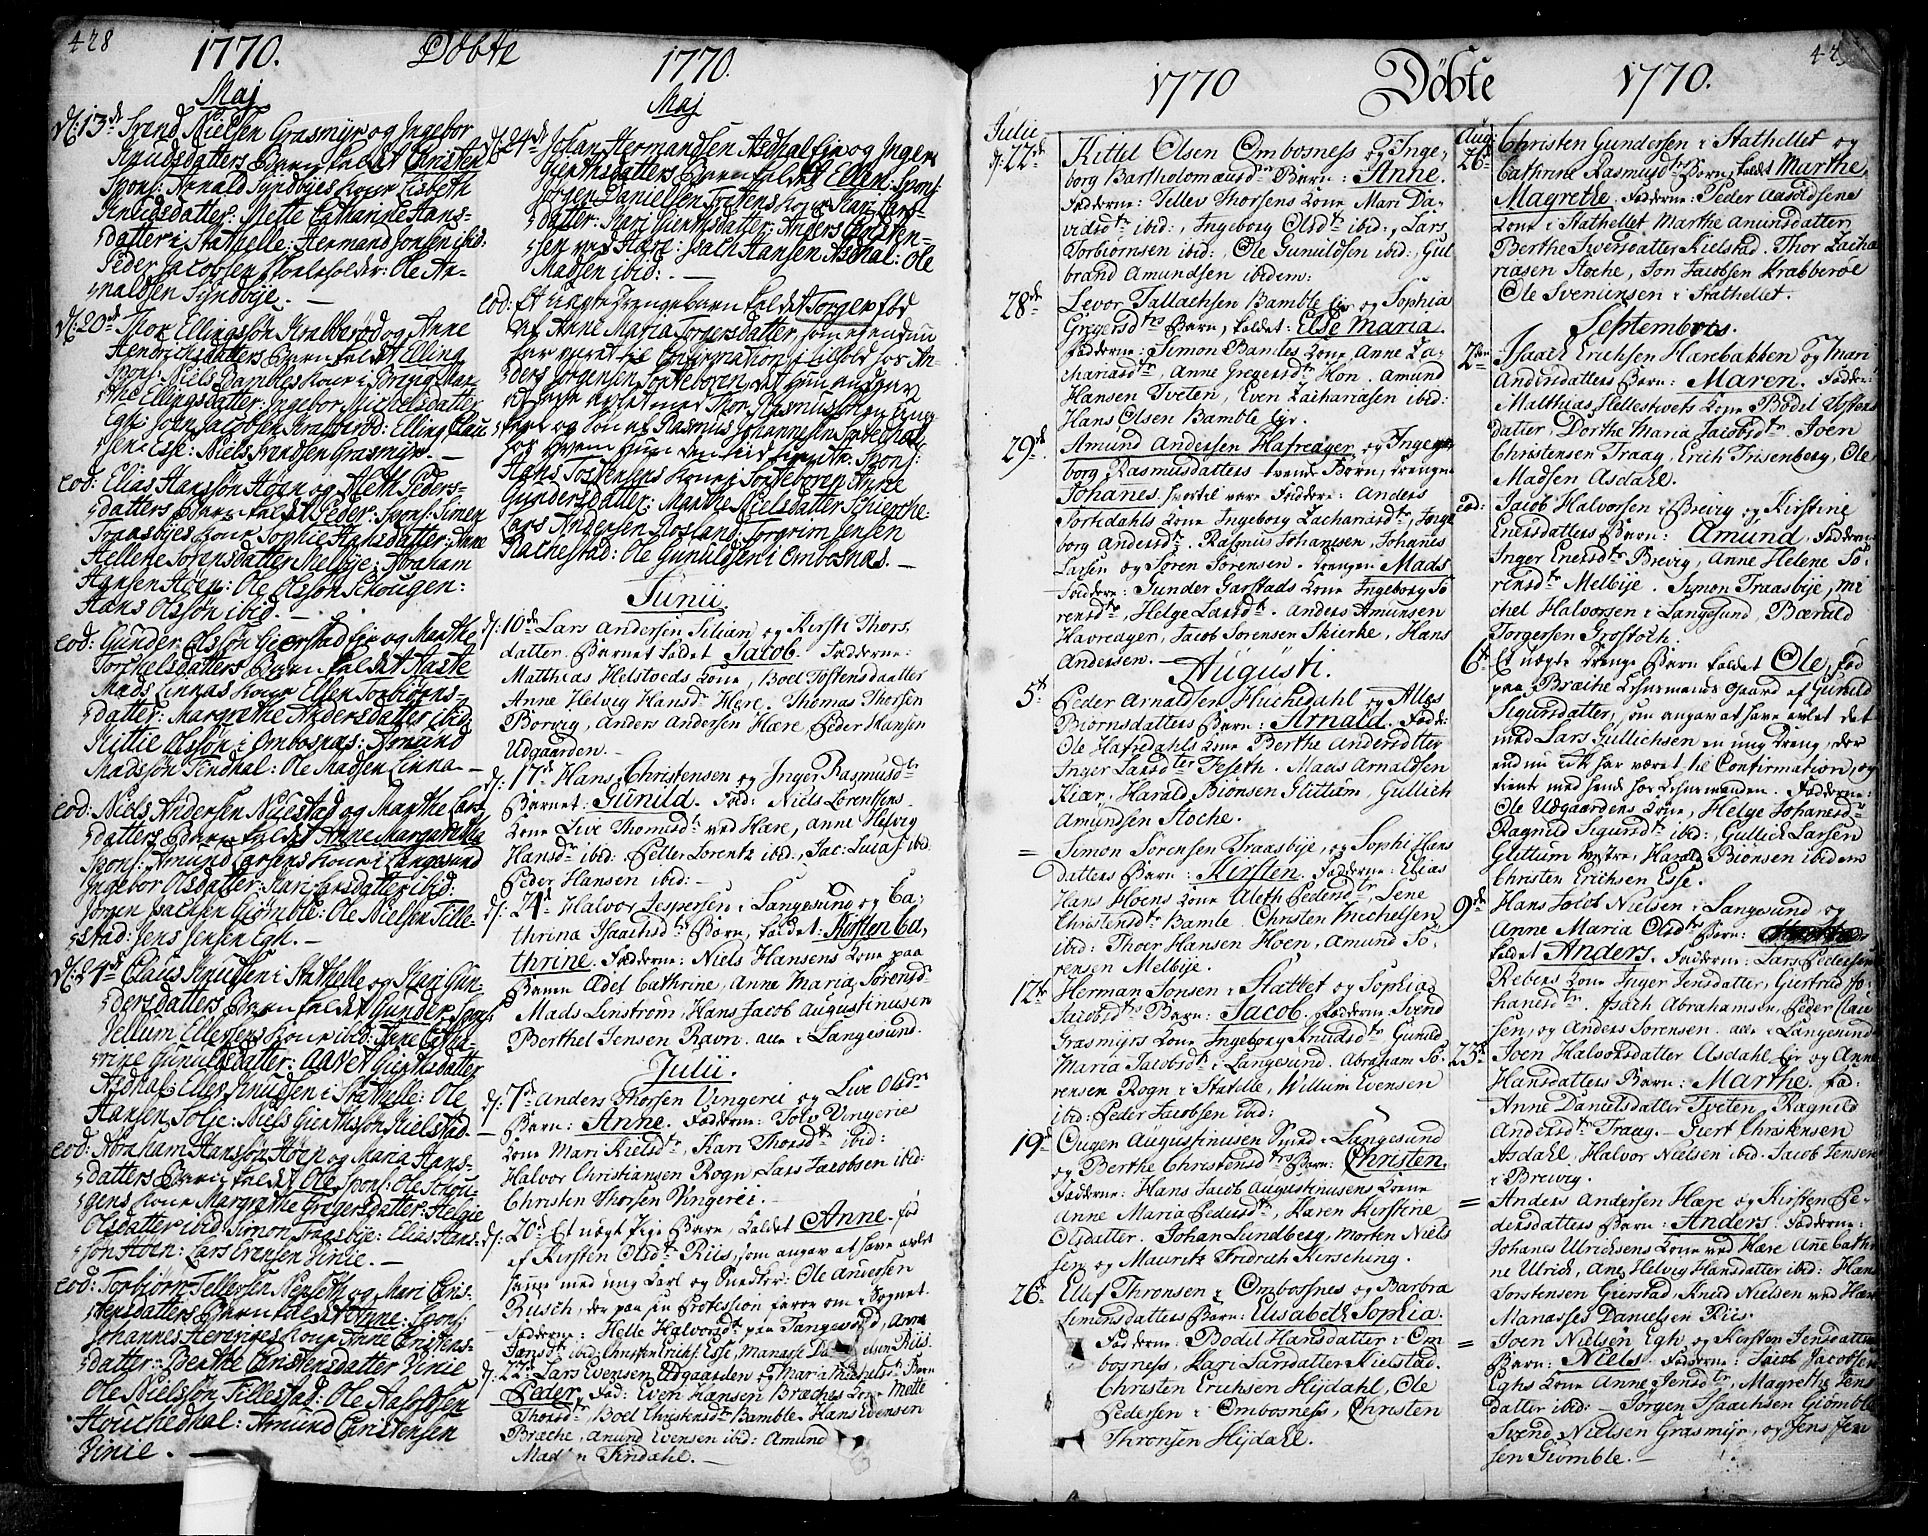 428
1770. Döbte 1770.
Maj
d: 13de Svend Nielsen Grasmyr og Ingebor
Knudsdatters Barn kaldet Christen
Spons: Arnold Syndbøes Kone Lisbeth
Knudsdatter: Mette Catharine Hans-
datter i Stathelle: Hermand Jonsen ibid:
Peder Jacobsen Skoleholder: Ole Ar-
noldsen Syndbøe. —
d: 20de Thor Ellingsøn Krabberød og Anne
Hendrichsdatters Barn kaldet Elling
Spons: Niels Bambles Kone i Mar-
the Ellingsdatter: Ingebor Michelsdatter
Egh: Joen Jacobsen Krabberød: Elling Clau
sen Esse: Niels Svendsen Grasmyr. —
eod: Elias Hansøn Hoen og Aleth Peders-
datters Barn kaldet Peder: Spons: Simen
Traasbyes Kone Sophie Hansdatter: Anne
Hellene Sørensdatter Melbye: Abraham
Hansen Hoen: Ole Olssøn Schougen:
Hans Olssøn ibid. —
eod: Gunder Olssøn Gierstad Eie og Marthe
Torchelsdatters Barn kaldet Aaste
Mads Linnas Kone Ellen Torbiørns-
datter: Margrethe Andersdatter ibid:
Kittil Olssøn i Ombosnæs: Amund
Madssøn Findhal: Ole Madsen Linna —
eod: Niels Andersen Nuestad og Marthe Lars-
datters Barn kaldet Anne Margrethe
Spons: Amund Larsens Kone i Langesund
Ingebor Olsdatter: Kari Larsdatter ibid:
Jørgen Isachsen Giømble: Ole Nielsen Tille-
stad: Jens Jensen Egh. —
d: 24de Claus Knudsen i Stathelle og Kari Gun-
dersdatters Barn kaldet Gunder: Spons:
Vellum Ellefsens Kone ibid: Anne Catha-
rine Gunuldsdatter: Aavet Gierthsdatter
Asdhal: Ellef Knudsen i Stathelle: Ole
Hansen Tolje: Niels Gierthssøn Kielstad. —
eod: Abraham Hansøn Hoen og Maria Hans-
datters Barn kaldet Ole Spons: Ole Schou-
gens Kone Margrethe Gregersdatter: Helgie
Olsdatter ibid: Simon Traasbye: Elias Hans-
søn Hoen: Lars Evensen Vinie. —
eod: Torbiørn Tellefsen Nenseth og Mari Chris-
tensdatters Barn kaldet Anne: Spons:
Johannes Herenges Kone Anne Christens-
datter: Berthe Christensdatter Vinie
Ole Nielssøn Tillestad: Ole Kalssøsen
Houchedhal: Amund Christensen
Vinie. —
Maj
d: 24de Johan Hermandsen Asdhal Eie og Inger
Gierthsdatters Barn kaldet Ellen: Spons:
Jørgen Danielsen Tvetens Kone Kari Lars-
datter: Kari Gierthsdatter: Anders Christen-
sen ved Hære: Isach Hansen Asdhal: Ole
Madsen ibid: —
eod: Et uægte Drengebarn kaldet Torger fød
af Anne Maria Torgersdatter, som ej endnu
har været til Confirmation, i tilhold hos An-
ders Jørgensen Sorteboren, det hun udgav
at have avlet med Thor Rasmussøn en ung
karl og Søn af Rasmus Johannesen
hos hvem Hun den tid tiente. Spons:
Hans Tostensens Kone i Sorteboren Anne
Gundersdatter: Marthe Nielsdatter Schierche:
Lars Andersen Rosland: Torgrim Jensen
Rachestad: Ole Gunuldsen i Ombosnæs. —
Junii.
d: 10de Lars Andersen Silian og Kirsti Thors
datter Barnet kaldet Jacob. Fadderne:
Matthias Helstveds Kone, Boel Tostensdaatter
Anne Helvig Hansdr Hære, Thomas Thorsen
Borvig, Anders Andersen Hære, Peder Hansen
Udgaarden. —
d: 17de Hans Christensen og Inger Rasmusdtr
Barnet Gunild. Fad: Niels Lorentsens
Kone Live Thomasdtr ved Hære, Anne Helvig
Hansdr ibid: Petter Lorentz ibid:, Jac: Lucas: ibid:
Peder Hansen ibid: —
d: 24de Halvor Jespersen i Langesund og Ca-
thrina Isaachsdtrs Barn, kaldet: Kirsten Ca-
thrine. Fadderne: Niels Hansens Kone paa
Adel Cathrine, Anne Maria Sørensdr
Mads Linstrøm, Hans Jacob Augustinusen
Berthel Jensen Ravn. alle i Langesund.
Julii.
d: 1ste Anders Thorsen Vingerei og Live Olsdrs
Barn: Anne. Fadderne: Tolv Vingeries
Kone Mari Kielsdtr, Kari Thorsdtr ibid:
Halvor Christiansen Rogn, Lars Jacobsen ibid:
Christen Thorsen Vingerei. —
d: 20de Et uægt Pige Barn, kaldet Anne. fød
af Kirsten Olsdtr Riis, som angav at have avlet
samme med ung Carl og Snedker: Ole Andersen
Rusch, der paa sin Profession farer om i Sognet.
Fadderne: Helle Halvorsdtr paa Tangesund, Anne
Jansdtr ibid: Christen Erichs: Esse, Manasse Danielsen Riis.
d: 22de Lars Evensen Udgaarden og Maria Michelsdtrs Barn
Peder, Fad: Even Hansen Bræches Kone Mette
Thorsdtr, Boel Christensdtr Bamble, Hans Evensen
Bræche, Amund Evensen ibid: Amund
Madsen Findahl. —
1770 Döbte 1770.
Julie
d: 22de Kittel Olsen Ombosness og Inge-
borg Bartholomæusdrs Barn: Anne.
Fadderne: Tellev Thorsens Kone Mari Da-
vidsdtr ibid:, Ingeborg Olsdtr ibid:, Lars
Torbiørnsen ibid:, Ole Gunuldsen ibid:, Gul
brand Amundsen ibidem:
28de Levor Tallachsen Bamble Eie og Sophia
Gregersdtrs Barn, kaldet: Else Maria.
Fadderne: Simon Bambles Kone Anne Za-
chariasdtr, Anne Gregersdtr Hon. Amund
Hansen Tveten, Even Zachariasen ibid:
Hans Olsen Bamble Eie.
29de Amund Andersen Hafreager og Inge-
borg Rasmusdatters tvende Børn, drengen
Johanes, hvortil vare Faddere: Anders
Tortdahls Kone Ingeborg Zachariasdtr, Inge
borg Andersdtr. Rasmus Johansen, Johanes
Larsen og Søren Sørensen. Drengen Mads
Faddere: Gunder Garstads Kone Ingeborg Sø-
rensdtr, Helge Larsdtr. Anders Amunsen
Havreager, Jacob Sørensen Skierke, Hans
Andersen. —
Augusti.
5te Peder Arnoldsen Huchedahl og Alles
Biørnsdatters Barn: Arnold. Fadd:
Ole Hafredahls Kone Berthe Andersdatter
Inger Larsdtter Feseth. Mads Arnoldsen
Kiær, Harald Biønsen Glittum, Gullich
Amundsen Stoche.
= Simon Sørensen Traasbye, og Sophi Hans
datters Barn: Kirsten. Fadderne: Elias
Hans Hoens Kone Aleth Pedersdtr, Lene
Christensdtr Bamle. Christen Michelsen
ibid: Thoer Hansen Hoen, Amund Sø-
rensen Melbye.
12te Herman Jonsen i Stattet og Sophia
Jacobsdtrs Barn: Jacob. Fadderne Svend
Grasmyrs Kone Ingeborg Knudsdtr Gunild
Maria Jacobsdtr i Langesund. Abraham Sø-
rensen Rogn i Statelle, Willum Evensen
ibid: Peder Jacobsen ibid:
19de Ougen Augustinusen Smed i Langesund
og Berthe Christensdtrs Barn: Christen.
Fadderne: Hans Jacob Augustinusens Kone
Anne Maria Pedersdtr, Karen Kirstine
Olsdatter. Johan Lundberg, Morten Niels
sen og Mauritz Fridrich Hersching.
26de Ellef Thronsen i Ombossnes og Barbra
Simensdatters Barn: Elisabeth Sophia:
Fadderne: Bodil Hansdatter i Om
bosness, Kari Larsdatter Kielstad.
Christen Erichsen Hydahl, Ole
Pedersen i Ombosness, Christen
Thronsen Hydahl.
Aug:
26de Christen Gundersen i Stathellet og
Cathrine Rasmusdtrs Barn, kaldt Marthe
Magrethe, Fadderne: Peder Aavoldsens
Kone i Stathellet Marthe Amunsdatter
Berthe Iversdatter Kielstad. Thor Zacha
riasen Stoche, Jon Jacobsen Krabberøe
Ole Svenunsen i Stathellet.
Septembris.
2den Isaach Erichsen Hærebakken og Mari
Andersdatters Barn: Maren. Fadder:
Matthias Hellestvets Kone Bodel Tostens
datter, Dorthe Maria Jacobsdtr. Joen
Christensen Traag, Erich Frisenberg, Ole
Madsen Asdahl.
eod: Jacob Halvorsen i Brevig og Kirstine
Enersdatters Barn: Amund. Fadderne:
Inger Enersdtr Brevig, Anne Helene Sø-
rensdtr Melbye. Simon Traasbye, Mi
chel Halvorsen i Langesund, Bærald
Torgersen Grostoch.
6te Et uægte Drenge Barn kaldet Ole, fød
paa Bræche Lehnsmands Gaard af Gunild
Sigursdatter, som angav at have avlet det
med Lars Gullichsen en ung Dreng, der
endnu ikk har været til Confirmation, og
tient med hende hos Lehnsmanden. Fadderne:
Ole Udgaardens Kone, Helge Johanesdr
Ragnild Sigursdtr ibid:, Gullich Larsen
Glittum vestre, Harald Bionsen ibidem
Christen Erichsen Esse.
9de Hans Jacob Nielsen i Langesund og
Anne Maria Olsdtrs Barn:
kaldet Anders. Fadderne: Lars Pedersen
Rebers Kone Inger Jensdatter, Giertrud Jo-
hanisdtr. Isach Abrahamsen, Peder Clau
sen, og Anders Sørensen. alle i Langesund
23de Joen Halvorsdatter Asdahl Eie og Anne
Hansdatters Barn: Marthe. Fad:
Anne Danielsdatter Tveten, Ragnild
Andersdtr Traag. — Giert Christensen
Asdahl, Halvor Nielsen ibid: Jacob Jensen
i Brevig.
= Anders Andersen Hære og Kirsten Pe-
dersdatters Barn: Anders. Fadderne:
Johanes Ulrichsens Kone ved Hære Anne Cathri
ne Ulrich, Ane Helvig Hansdatter ibid: Hans
Torstensen Gierstad, Knud Nielsen ved Hære
Manasses Danielsen Riis.
= Joen Nielsen Egh og Kirsten Jensdatters
Barn: Niels. Fadderne: Jacob Jacobsen
Eghs Kone Anne Jensdtr, Magrethe Jens
datter ibid: — Jørgen Isaachsen Giømble
Svend Nielsen Grasmyr, og Jens Jen
sen Giømble. —